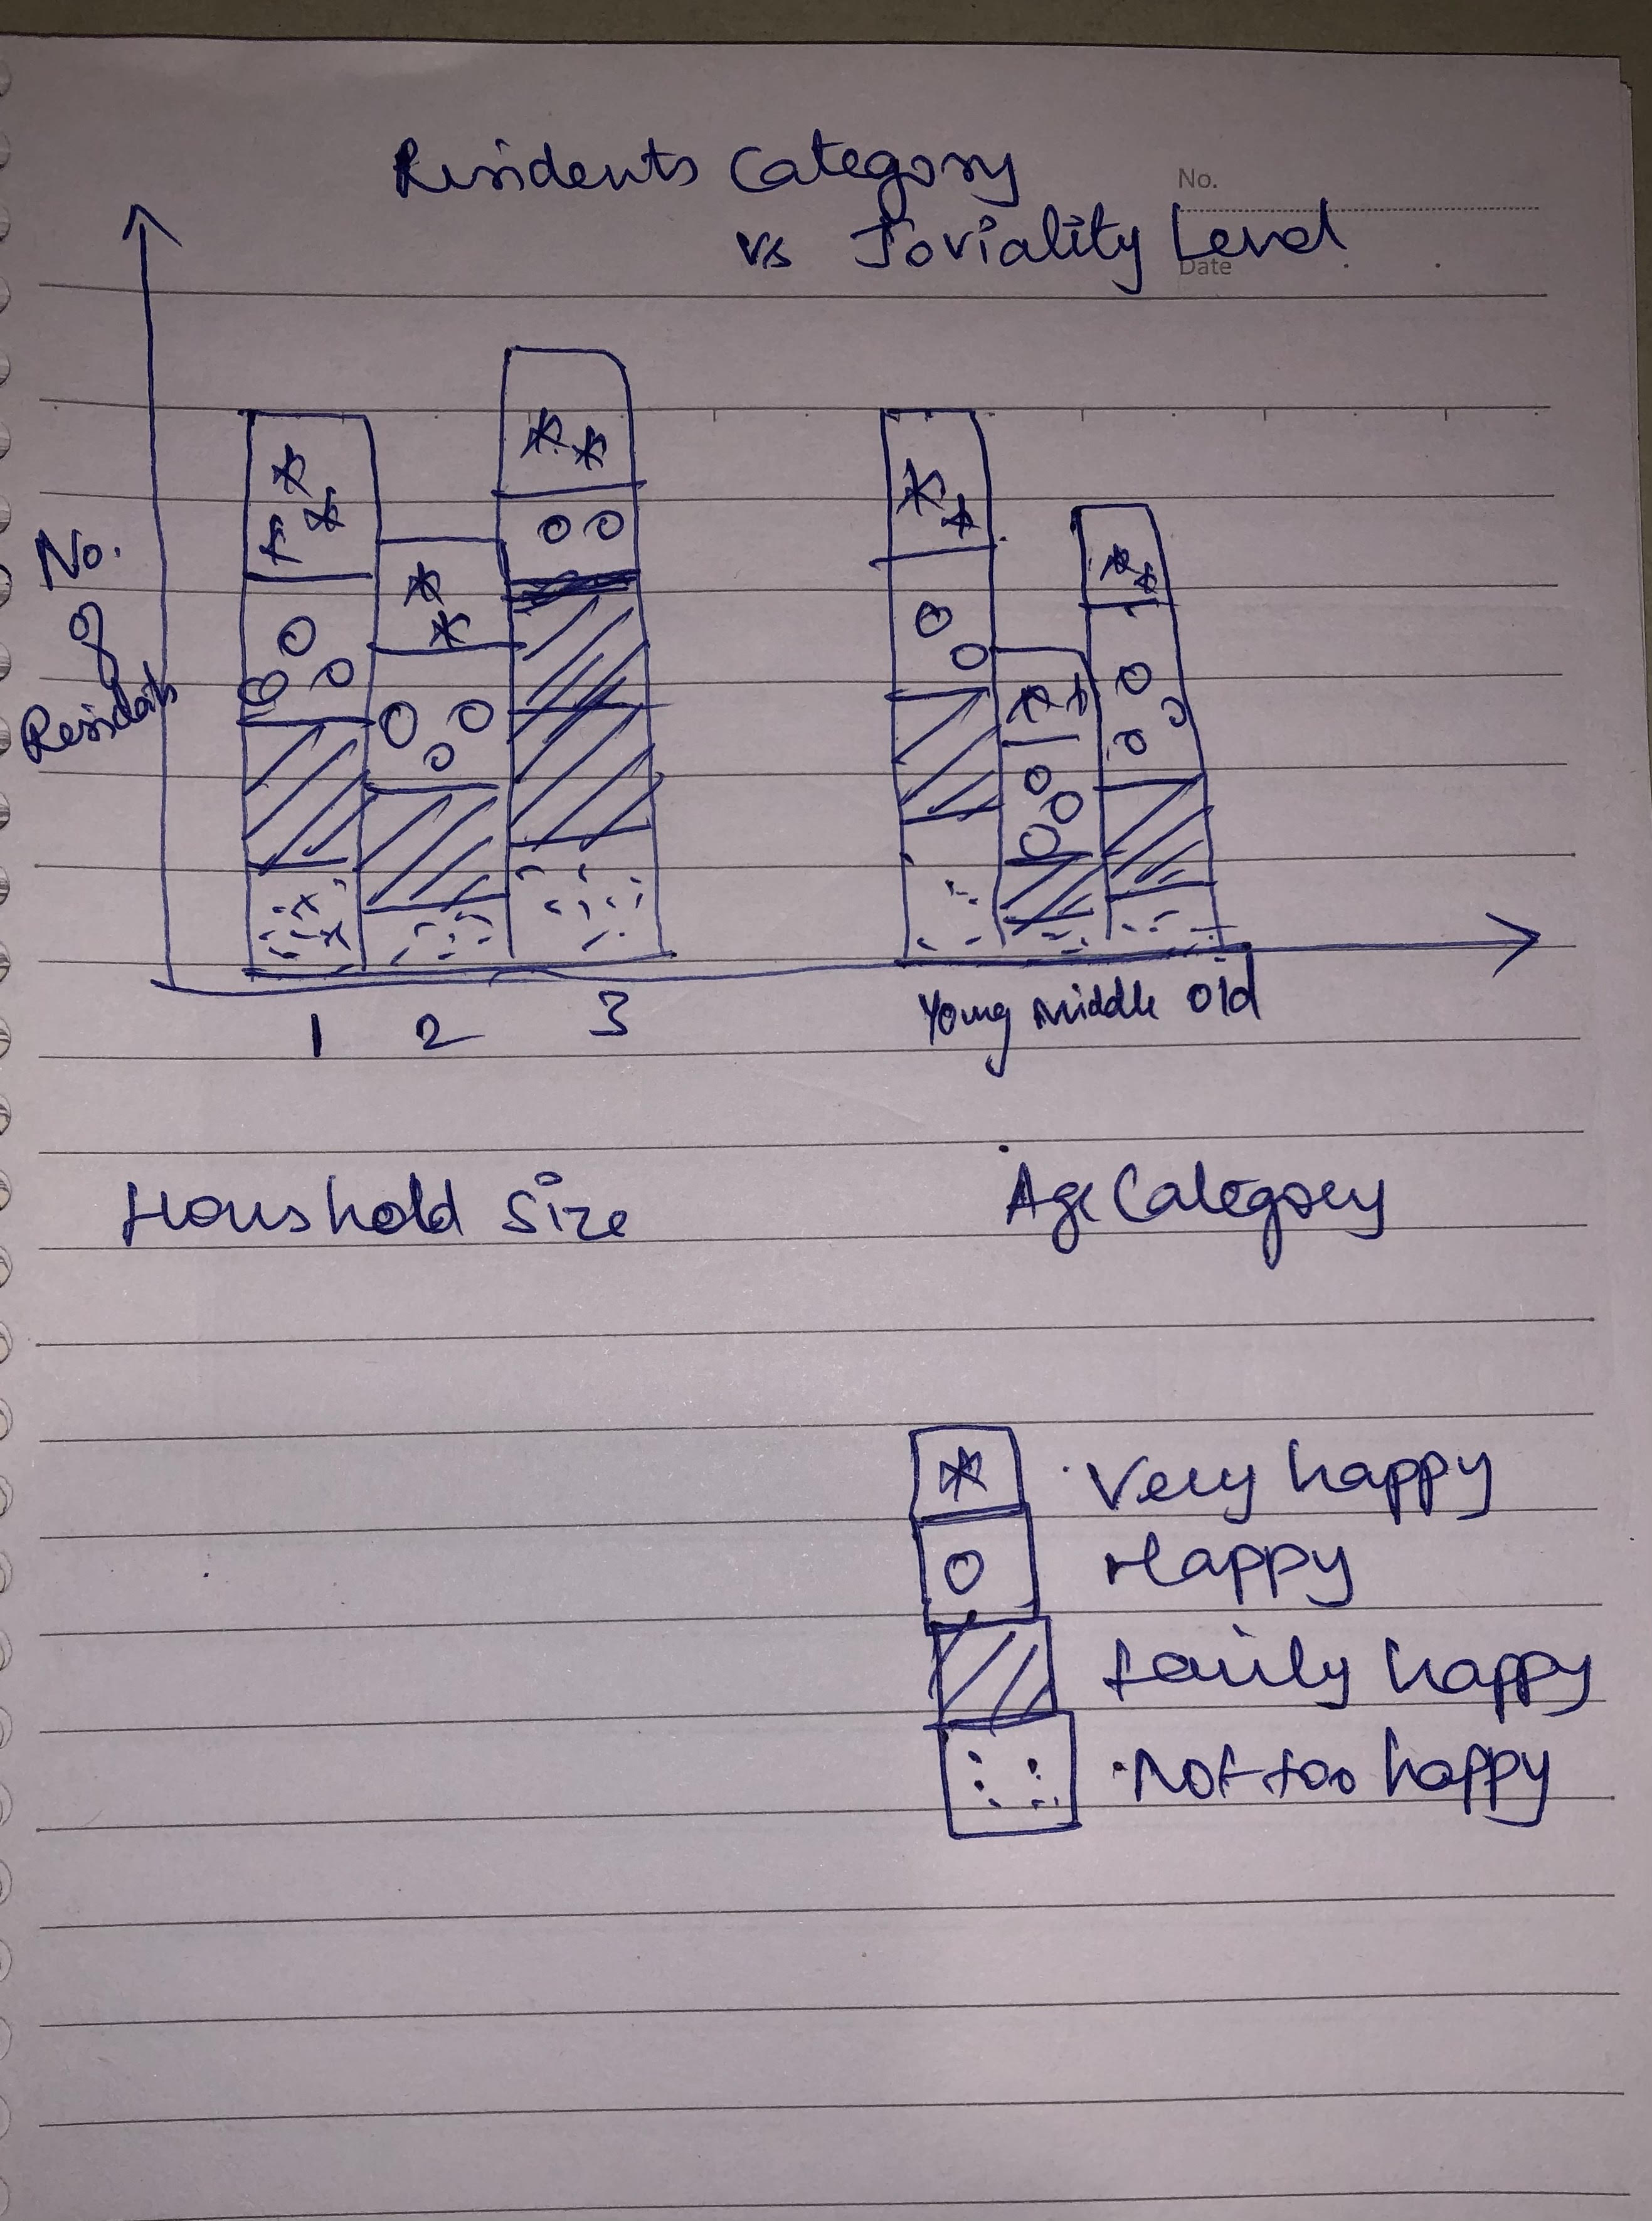 Residents Category
No.
vs Joviality Level
Date
No.
of
Residents
1 2 3
Young Middle Old
Houshold Size
Age Category
Very happy
Happy
fairly happy
Not too happy